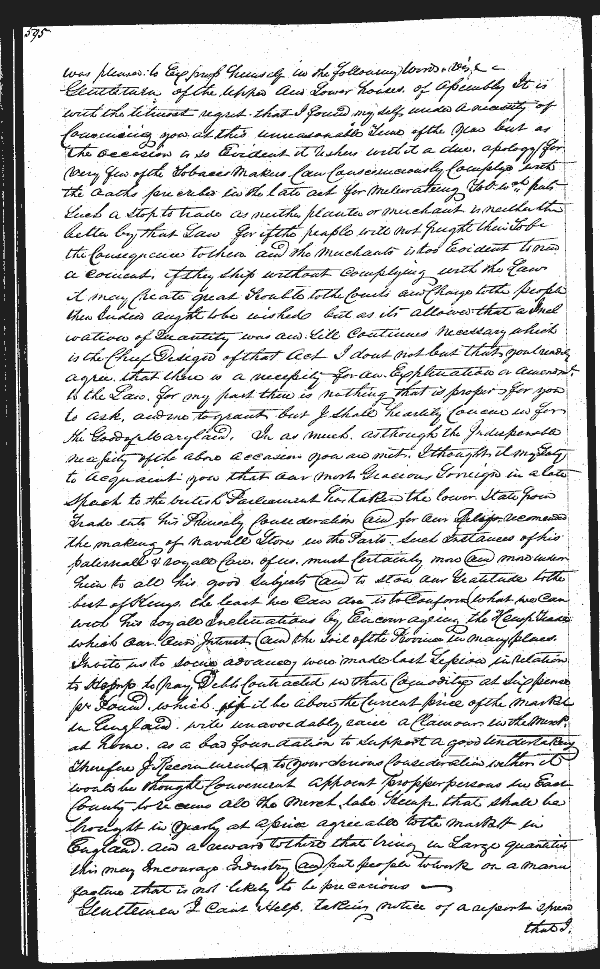 595
was pleased to Express himself in the following Words Vizt
Gentlemen of the Upper and Lower houses of Assembly It is
with the utmost regret that I found my self under a necessity of
Convening you at this unseasonable time of the Year but as
the occasion is so Evident it ushers with it a due apology for
very few of the Tobacco Makers Can Consciensciously Comply with
the Oaths prescribed in the late act for Meliorating Tob:o wch puts
Such a Stop to trade as neither planter or merchant is neither the
better by that Law for if the people will not freight their Tob:o
the Consequence to them and the Merchants is too Evident to need
a coment, if they Ship without Complying with the Law
it may Create great Trouble to the Courts and Charge to the people
then Ended aught to be wished but as its allowed that a
of Quantity was and Still Continues necessary which
is the Chief Design of that Act I doubt not but that you readily
agree that there is a necessity for an Explanation or Amendmt
to the Law. for my part there is nothing that is proper for you
to ask, and me to grant but I shall heartily Concur in for
the Good of Maryland. In as much as though the Indispensable
necessity of the above occasion you are met, I thought it my Duty
to acquaint you that our most Gracious Sovreign in a late
Speech to the british Parliament has taken the lower State of our
Trade into his Princely Consideration and for our Relief recomends
the making of Navall Stores in the Parts. Such Instances of his
paternall & royall Care of us must Certainly more and more
him to all his good Subjects and to Stow our Gratitude to the
best of Kings. the least we Can doe is to Conform what we can
with his royall Inclinations by Encourageing the Hemp Trade
which our own Interest and the soil of the Province in many places
Invite us to some advances were made last Session in relation
to Hemp to pay Debts Contracted in that Comodity at Six pence
pr Pound. which if it be above the Current price of the market
in England. will unavoidably raise a Clamour in the Merch:ts
at home. as a bad foundation to Support a good undertaking
Therefore I Recommend to your Serious Consideration wether it
would be thought Convenient appoint propper persons in Each
County to receive all the Merchtable Hemp. that shall be
brought in Yearly at a price agreeable to the market in
England. and a reward to those that bring in Large quantities
this may Encourage Industry and put people to work on a manu
facture that is not likely to be precarious
Gentlemen I Cant Help. taking notice of a report spread
that I.